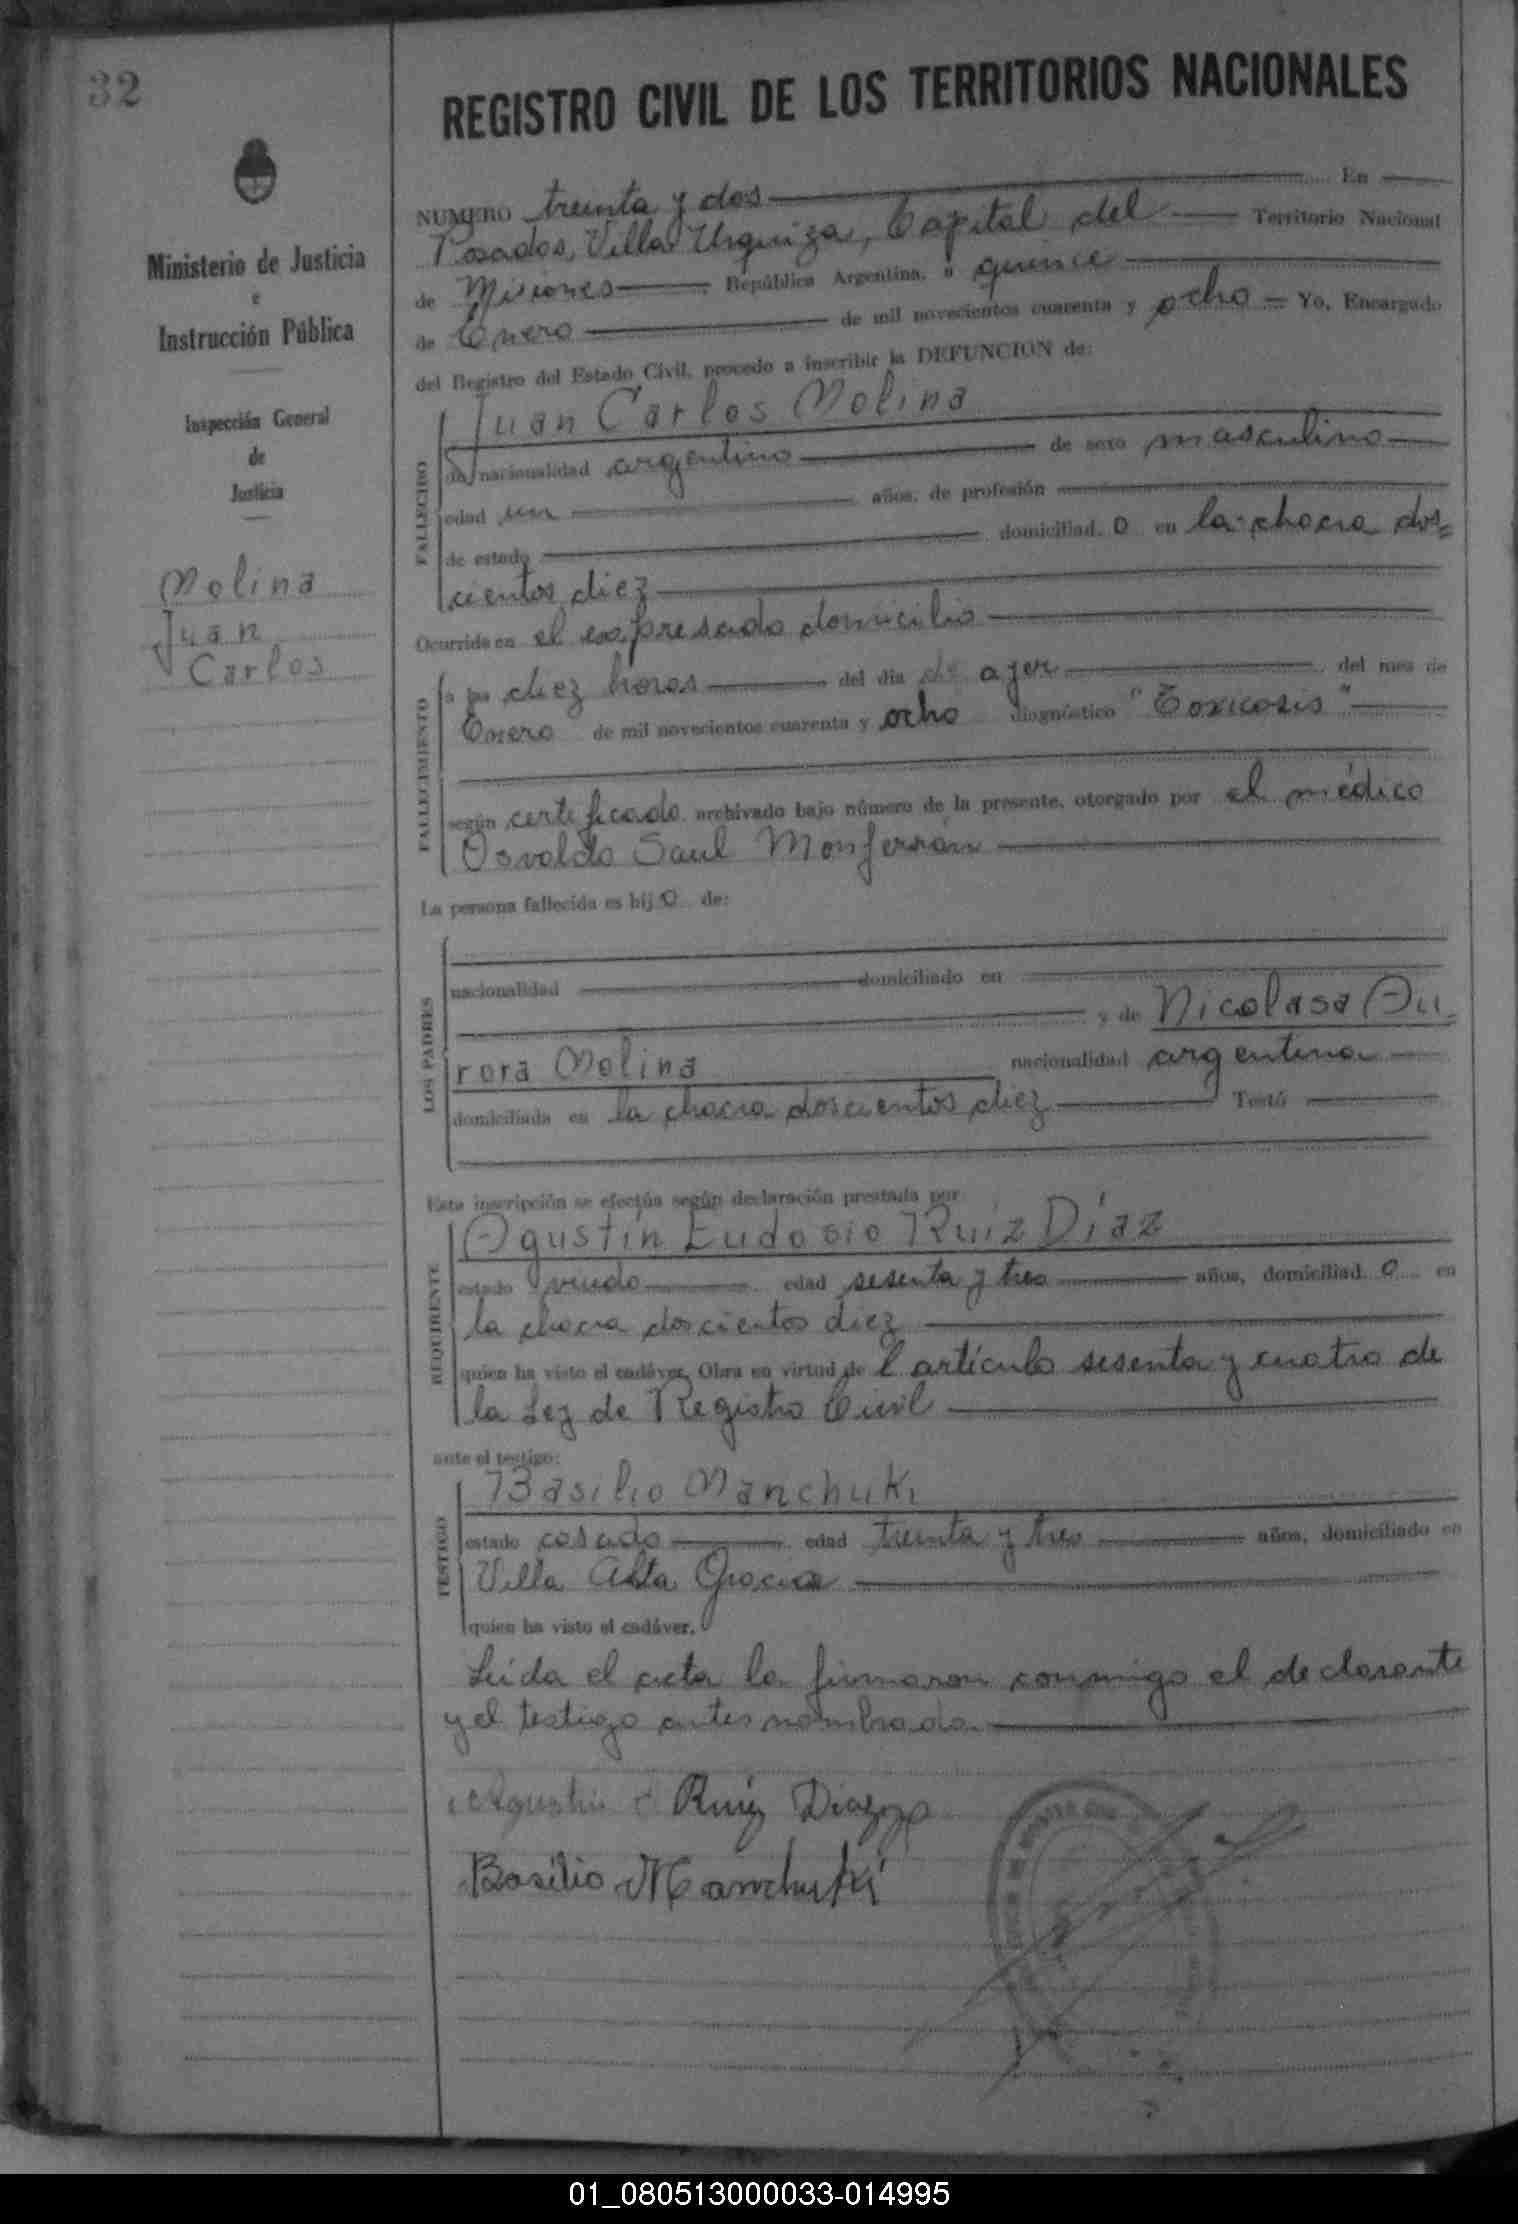 32
REGISTRO CIVIL DE LOS TERRITORIOS NACIONALES
Ministerio de Justicia
e
Instrucción Pública
Inspección General
de
Justicia
Molina
Juan
Carlos
NUMERO treinta y dos En
Posadas, Villa Urquiza, Capital del Territorio Nacional
de Misiones República Argentina, a quince
de Enero de mil novecientos cuarenta y ocho Yo, Encargado
del Registro del Estado Civil, procedo a inscribir la DEFUNCION de:
FALLECIDO
Juan Carlos Molina
de nacionalidad argentino de sexo masculino
edad un años, de profesión
de estado domiciliad o en la chacra dos=
cientos diez
Ocurrida en el expresado domicilio
FALLECIMIENTO
a las diez horas del día de ayer del mes de
Enero de mil novecientos cuarenta y ocho diagnóstico "Toxicosis"
según certificado archivado bajo número de la presente, otorgado por el médico
Osvaldo Saul Monferrán
La persona fallecida es hij o de:
LOS PADRES
nacionalidad domiciliado en
y de Nicolasa Au
rora Molina nacionalidad argentina
domiciliada en la chacra doscientos diez Testó
Esta inscripción se efectúa según declaración prestada por
REQUIRENTE
Agustín Eudosio Ruiz Díaz
estado viudo edad sesenta y tres años, domiciliad o en
la chacra doscientos diez
quien ha visto el cadáver. Obra en virtud de l artículo sesenta y cuatro de
la Ley de Registro Civil
ante el testigo:
TESTIGO
Basilio Manchuki
estado casado edad treinta y tres años, domiciliado en
Villa Alta Gracia
quien ha visto el cadáver.
Leida el acta la firmaron conmigo el declarante
y el testigo antes nombrado.
Agustin E Ruiz Diaz
Basilio Manchuki
01_080513000033-014995